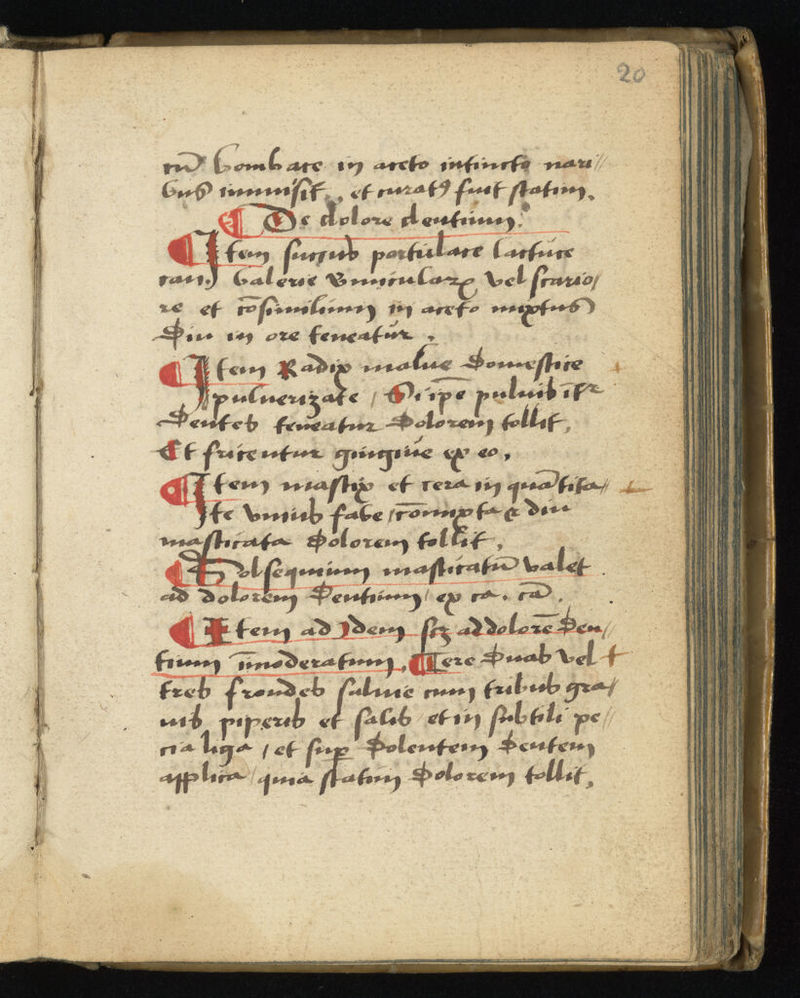 20
cū bombace in aceto intincto nari//
bus immisit, et curat9 fuit statim.
¶ De dolore dentium.
¶ Item succus portulace lactuce
valerie vel scario/
re et cōsimilium in aceto mixtus
Diu in ore teneatur.
¶ Item Radix malue Domestice
pulverizate / Si ipē pulvis
Dentes teneatur Dolorem tollit,
Et fricentur gingiue ex eo.
¶ Item mastix et cera in quātita//
te unius fabe / cōmixta & diu
masticata Dolorem tollit,
¶ Solsequium masticatū valet
ad dolorem Dentium / ex ca. cā.
¶ Item ad Idem scz ad dolorē Den/
tium īmoderatum, ¶ Tere Duas vel
tres frondes salvie cum tribus gra/
nis piperis et salis / et in subtili pe//
cia liga / et sup Dolentem Dentem
applica / quia statim Dolorem tollit,